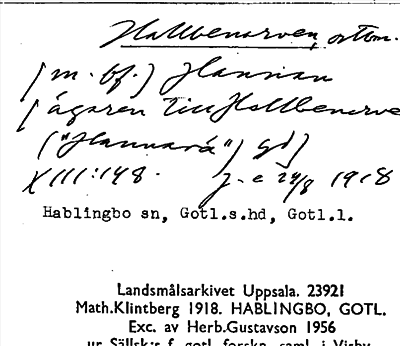 Hallbenarven, ortn.
(m. bf.) Hannan
(ägaren till Hallbenarve
("Hannará") gd)
XIII:148. J. e 24/8 1918
Hablingbo sn, Gotl.s.hd, Gotl.l.
Landsmålsarkivet Uppsala. 23921
Math.Klintberg 1918. HABLINGBO, GOTL.
Exc. av Herb.Gustavson 1956
ur Sällsk:s f. gotl. forskn. saml. i Visby